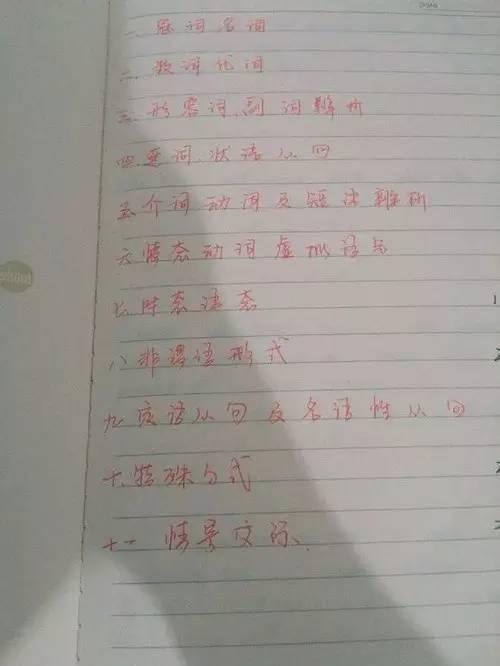 一、冠词名词
二、数词代词
三、形容词、副词辨析
四、连词、状语从句
五、介词动词及短语辨析
六、情态动词虚拟语气
七、时态语态
八、非谓语形式
九、定语从句及名语性从句
十、特殊句式
十一 情景交际、